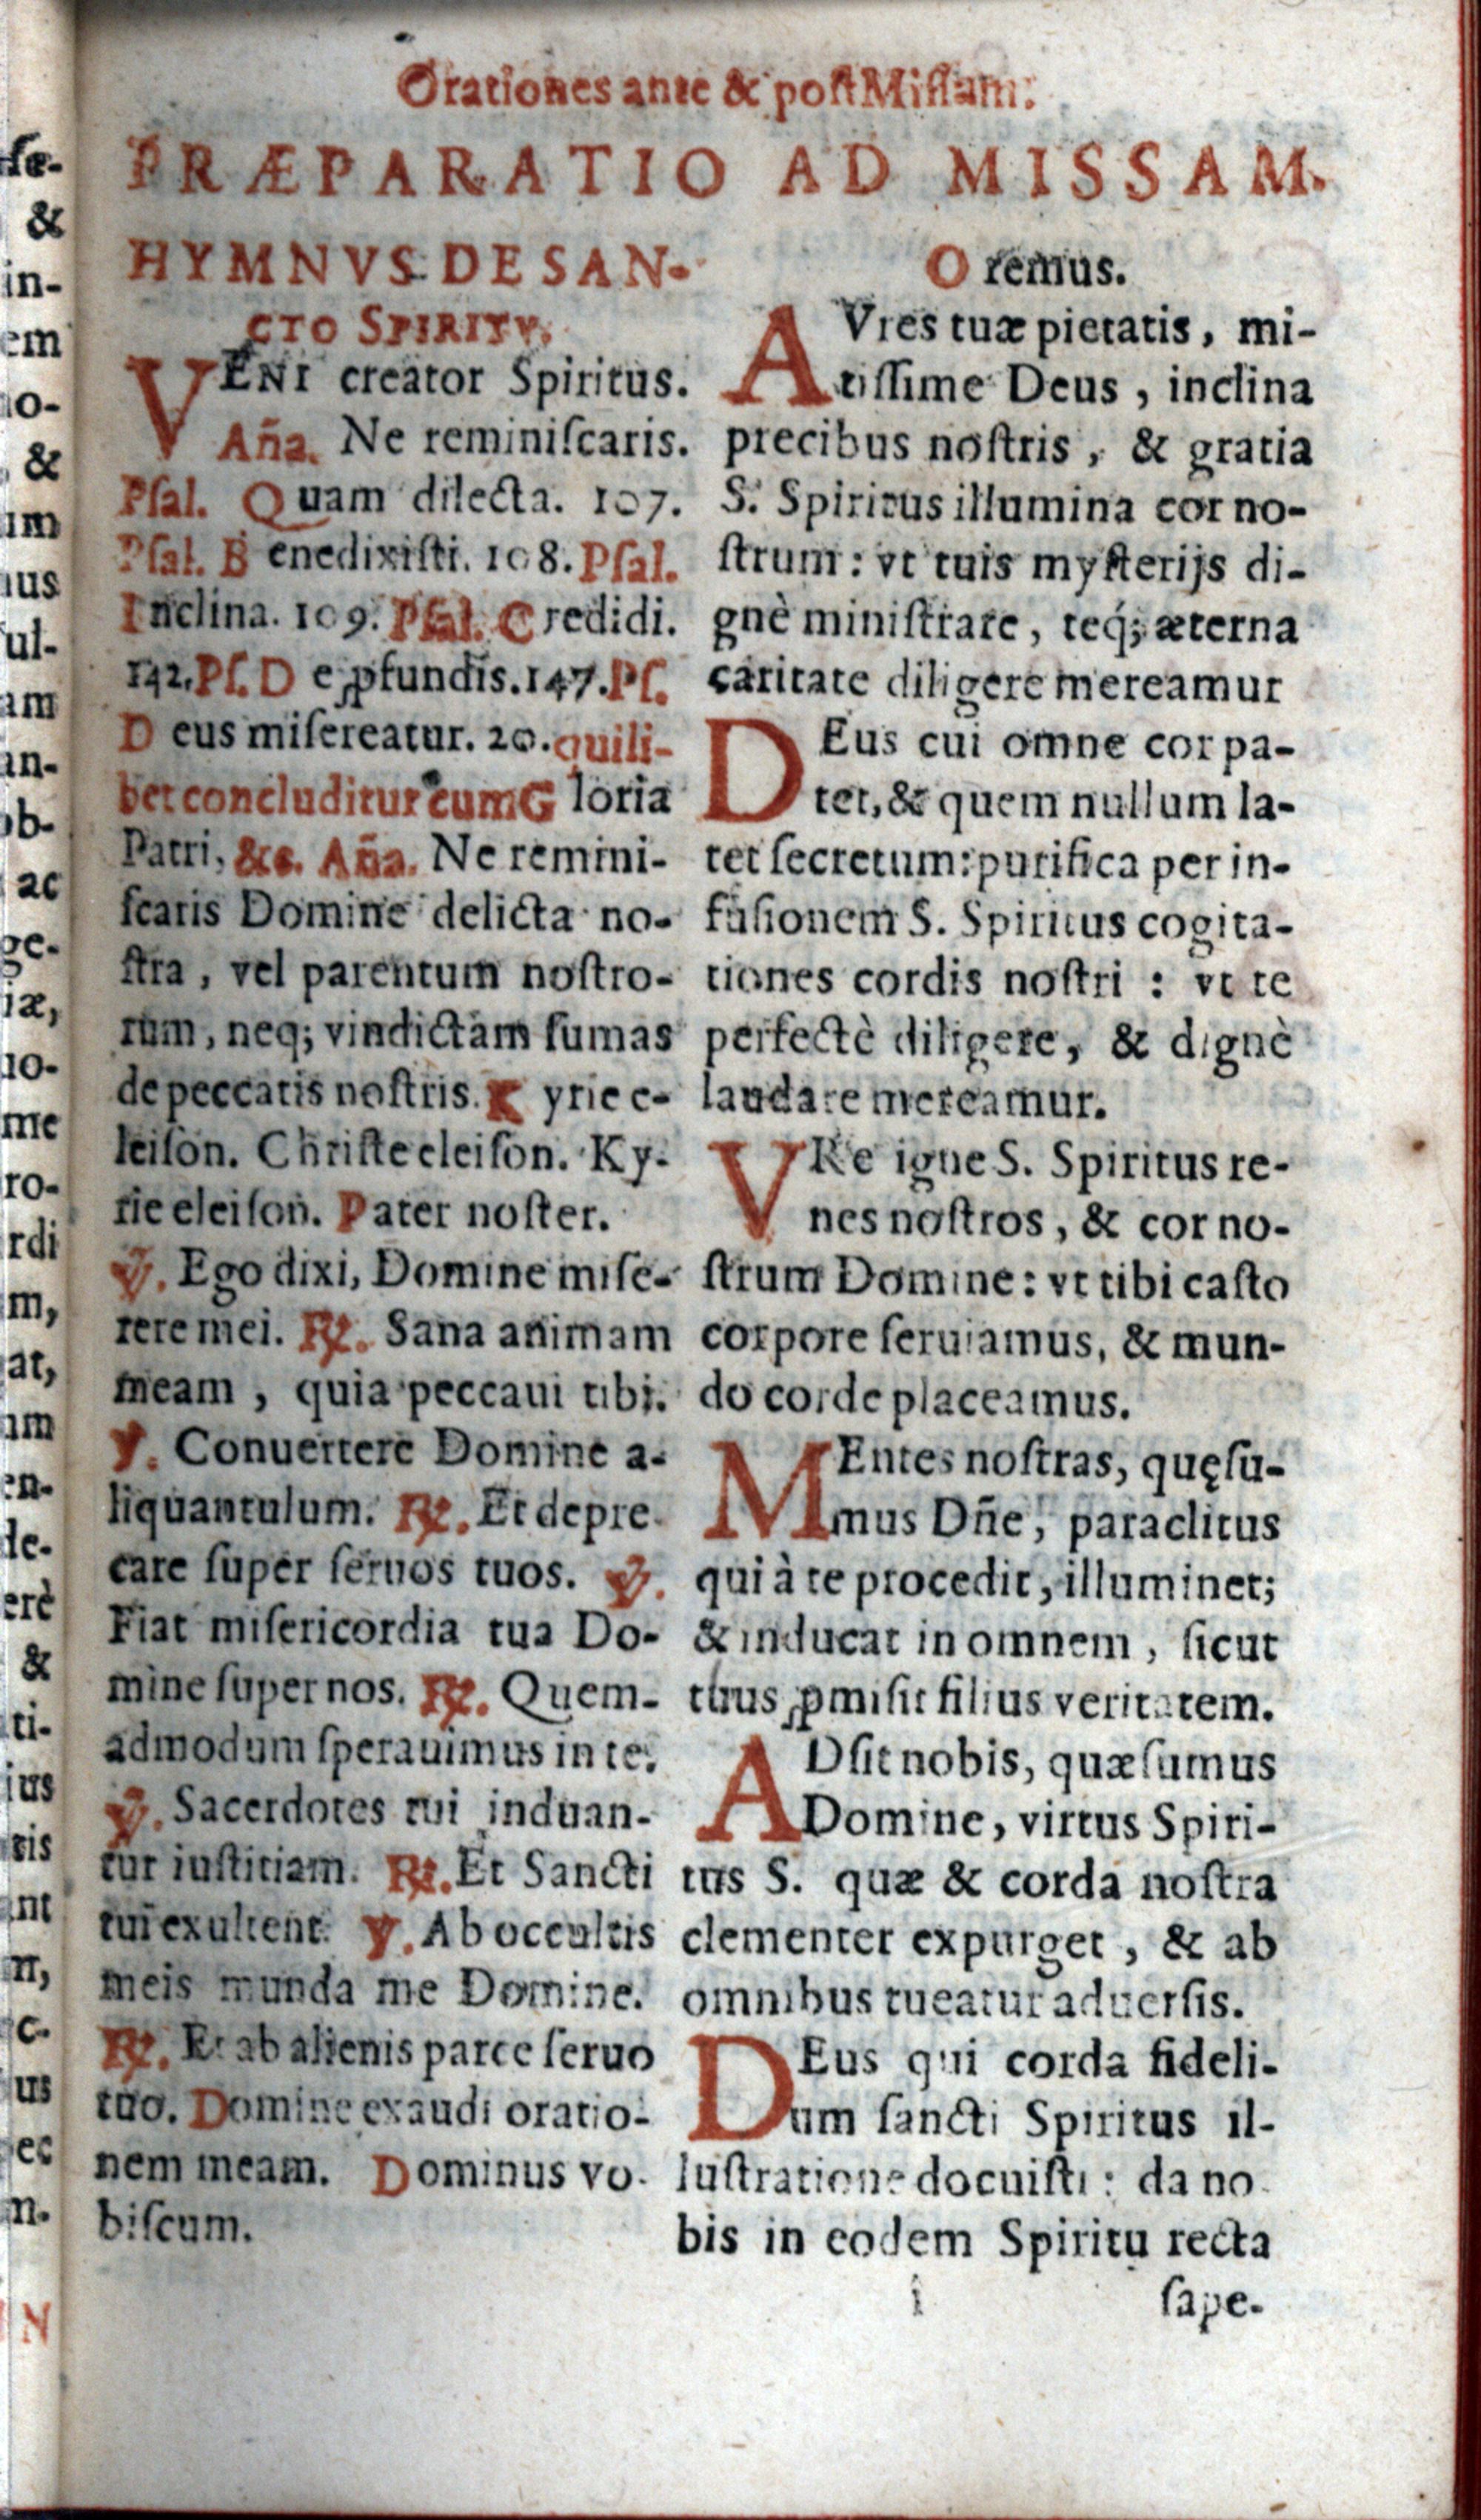 Orationes ante & poſt Miſſam.
PRÆPARATIO AD MISSAM.
HYMNVS DE SAN-
CTO SPIRITV.
VENI creator Spiritus.
Aña. Ne reminiſcaris.
Pſal. Quam dilecta. 107.
Pſal. Benedixiſti. 108. Pſal.
Inclina. 109. Pſal. Credidi.
142. Pſ. De ꝓfundis. 147. Pſ.
Deus miſereatur. 20. quili-
bet concluditur cum Gloria
Patri, &c. Aña. Ne remini-
ſcaris Domine delicta no-
ſtra, vel parentum noſtro-
rum, neq; vindictam ſumas
de peccatis noſtris. Kyrie e-
leiſon. Chriſte eleiſon. Ky-
rie eleiſon. Pater noſter.
℣. Ego dixi, Domine miſe-
rere mei. ℟. Sana animam
meam, quia peccaui tibi.
℣. Conuertere Domine a-
liquantulum. ℟. Et depre-
care ſuper ſeruos tuos. ℣.
Fiat miſericordia tua Do-
mine ſuper nos. ℟. Quem-
admodum ſperauimus in te.
℣. Sacerdotes tui induan-
tur iuſtitiam. ℟. Et Sancti
tui exultent. ℣. Ab occultis
meis munda me Domine.
℟. Et ab alienis parce ſeruo
tuo. Domine exaudi oratio-
nem meam. Dominus vo-
biſcum.
Oremus.
AVres tuæ pietatis, mi-
tiſſime Deus, inclina
precibus noſtris, & gratia
S. Spiritus illumina cor no-
ſtrum: vt tuis myſterijs di-
gnè miniſtrare, teq́; æterna
caritate diligere mereamur
DEus cui omne cor pa-
tet, & quem nullum la-
tet ſecretum: purifica per in-
fuſionem S. Spiritus cogita-
tiones cordis noſtri: vt te
perfectè diligere, & dignè
laudare mereamur.
VRe igne S. Spiritus re-
nes noſtros, & cor no-
ſtrum Domine: vt tibi caſto
corpore ſeruiamus, & mun-
do corde placeamus.
MEntes noſtras, quęſu-
mus Dñe, paraclitus
qui à te procedit, illuminet;
& inducat in omnem, ſicut
tuus ꝓmiſit filius veritatem.
ADſit nobis, quæſumus
Domine, virtus Spiri-
tus S. quæ & corda noſtra
clementer expurget, & ab
omnibus tueatur aduerſis.
DEus qui corda fideli-
um ſancti Spiritus il-
luſtratione docuiſti: da no-
bis in eodem Spiritu recta
i ſape-
ſæ-
&
in-
em
no-
&
um
nus
ful-
am
an-
ob-
ac
ge-
iæ,
no-
me
ro-
rdi
m,
at,
um
en-
de-
erè
&
ti-
ius
tis
nt
n,
c-
us
ec
n.
N